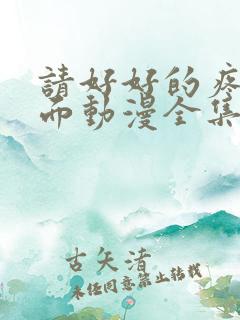 請好好的疼
而動漫全集
古矢清
未经同意禁止转载